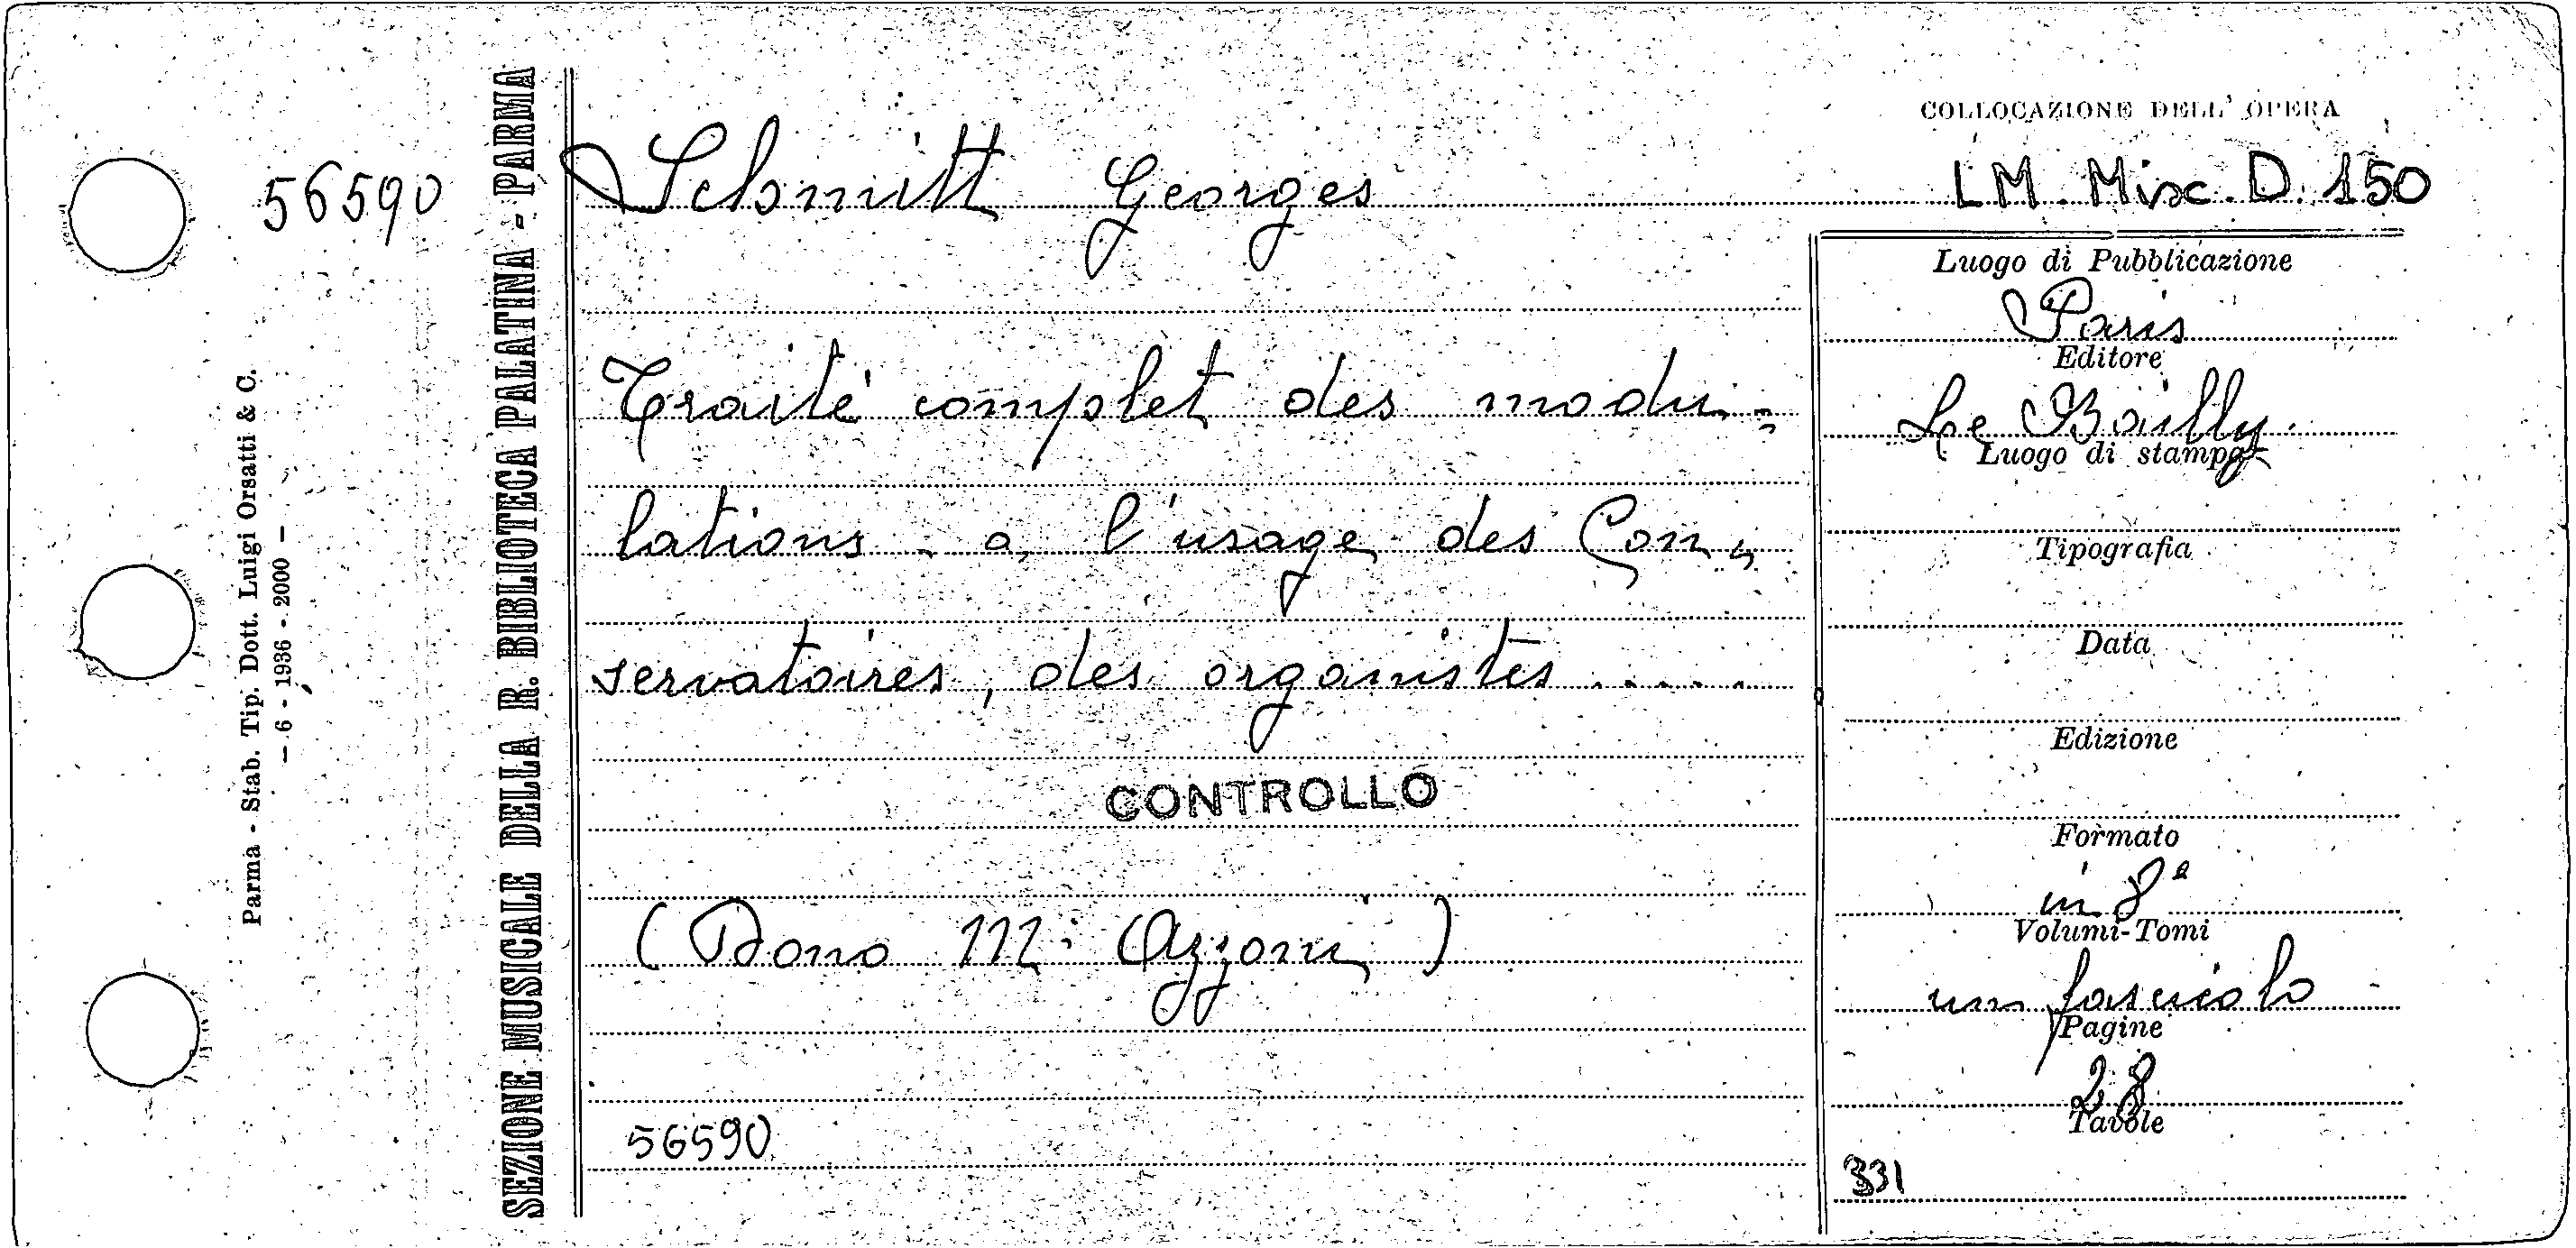 56590
Parma - Stab. Tip. Dott. Luigi Orsatti & C.
— 6 - 1936 - 2000 —
SEZIONE MUSICALE DELLA R. BIBLIOTECA PALATINA - PARMA
Schmitt Georges
COLLOCAZIONE DELL' OPERA
LM. Misc. D. 150
Traité complet des modu=
lations - a l'usage des Con=
servatoires, des organistes .....
CONTROLLO
(Dono M. Azzoni)
56590
Luogo di Pubblicazione
Paris
Editore
Le Bailly
Luogo di stampa
Tipografia
Data
Edizione
Formato
in 8°
Volumi-Tomi
un fascicolo
Pagine
28
Tavole
331